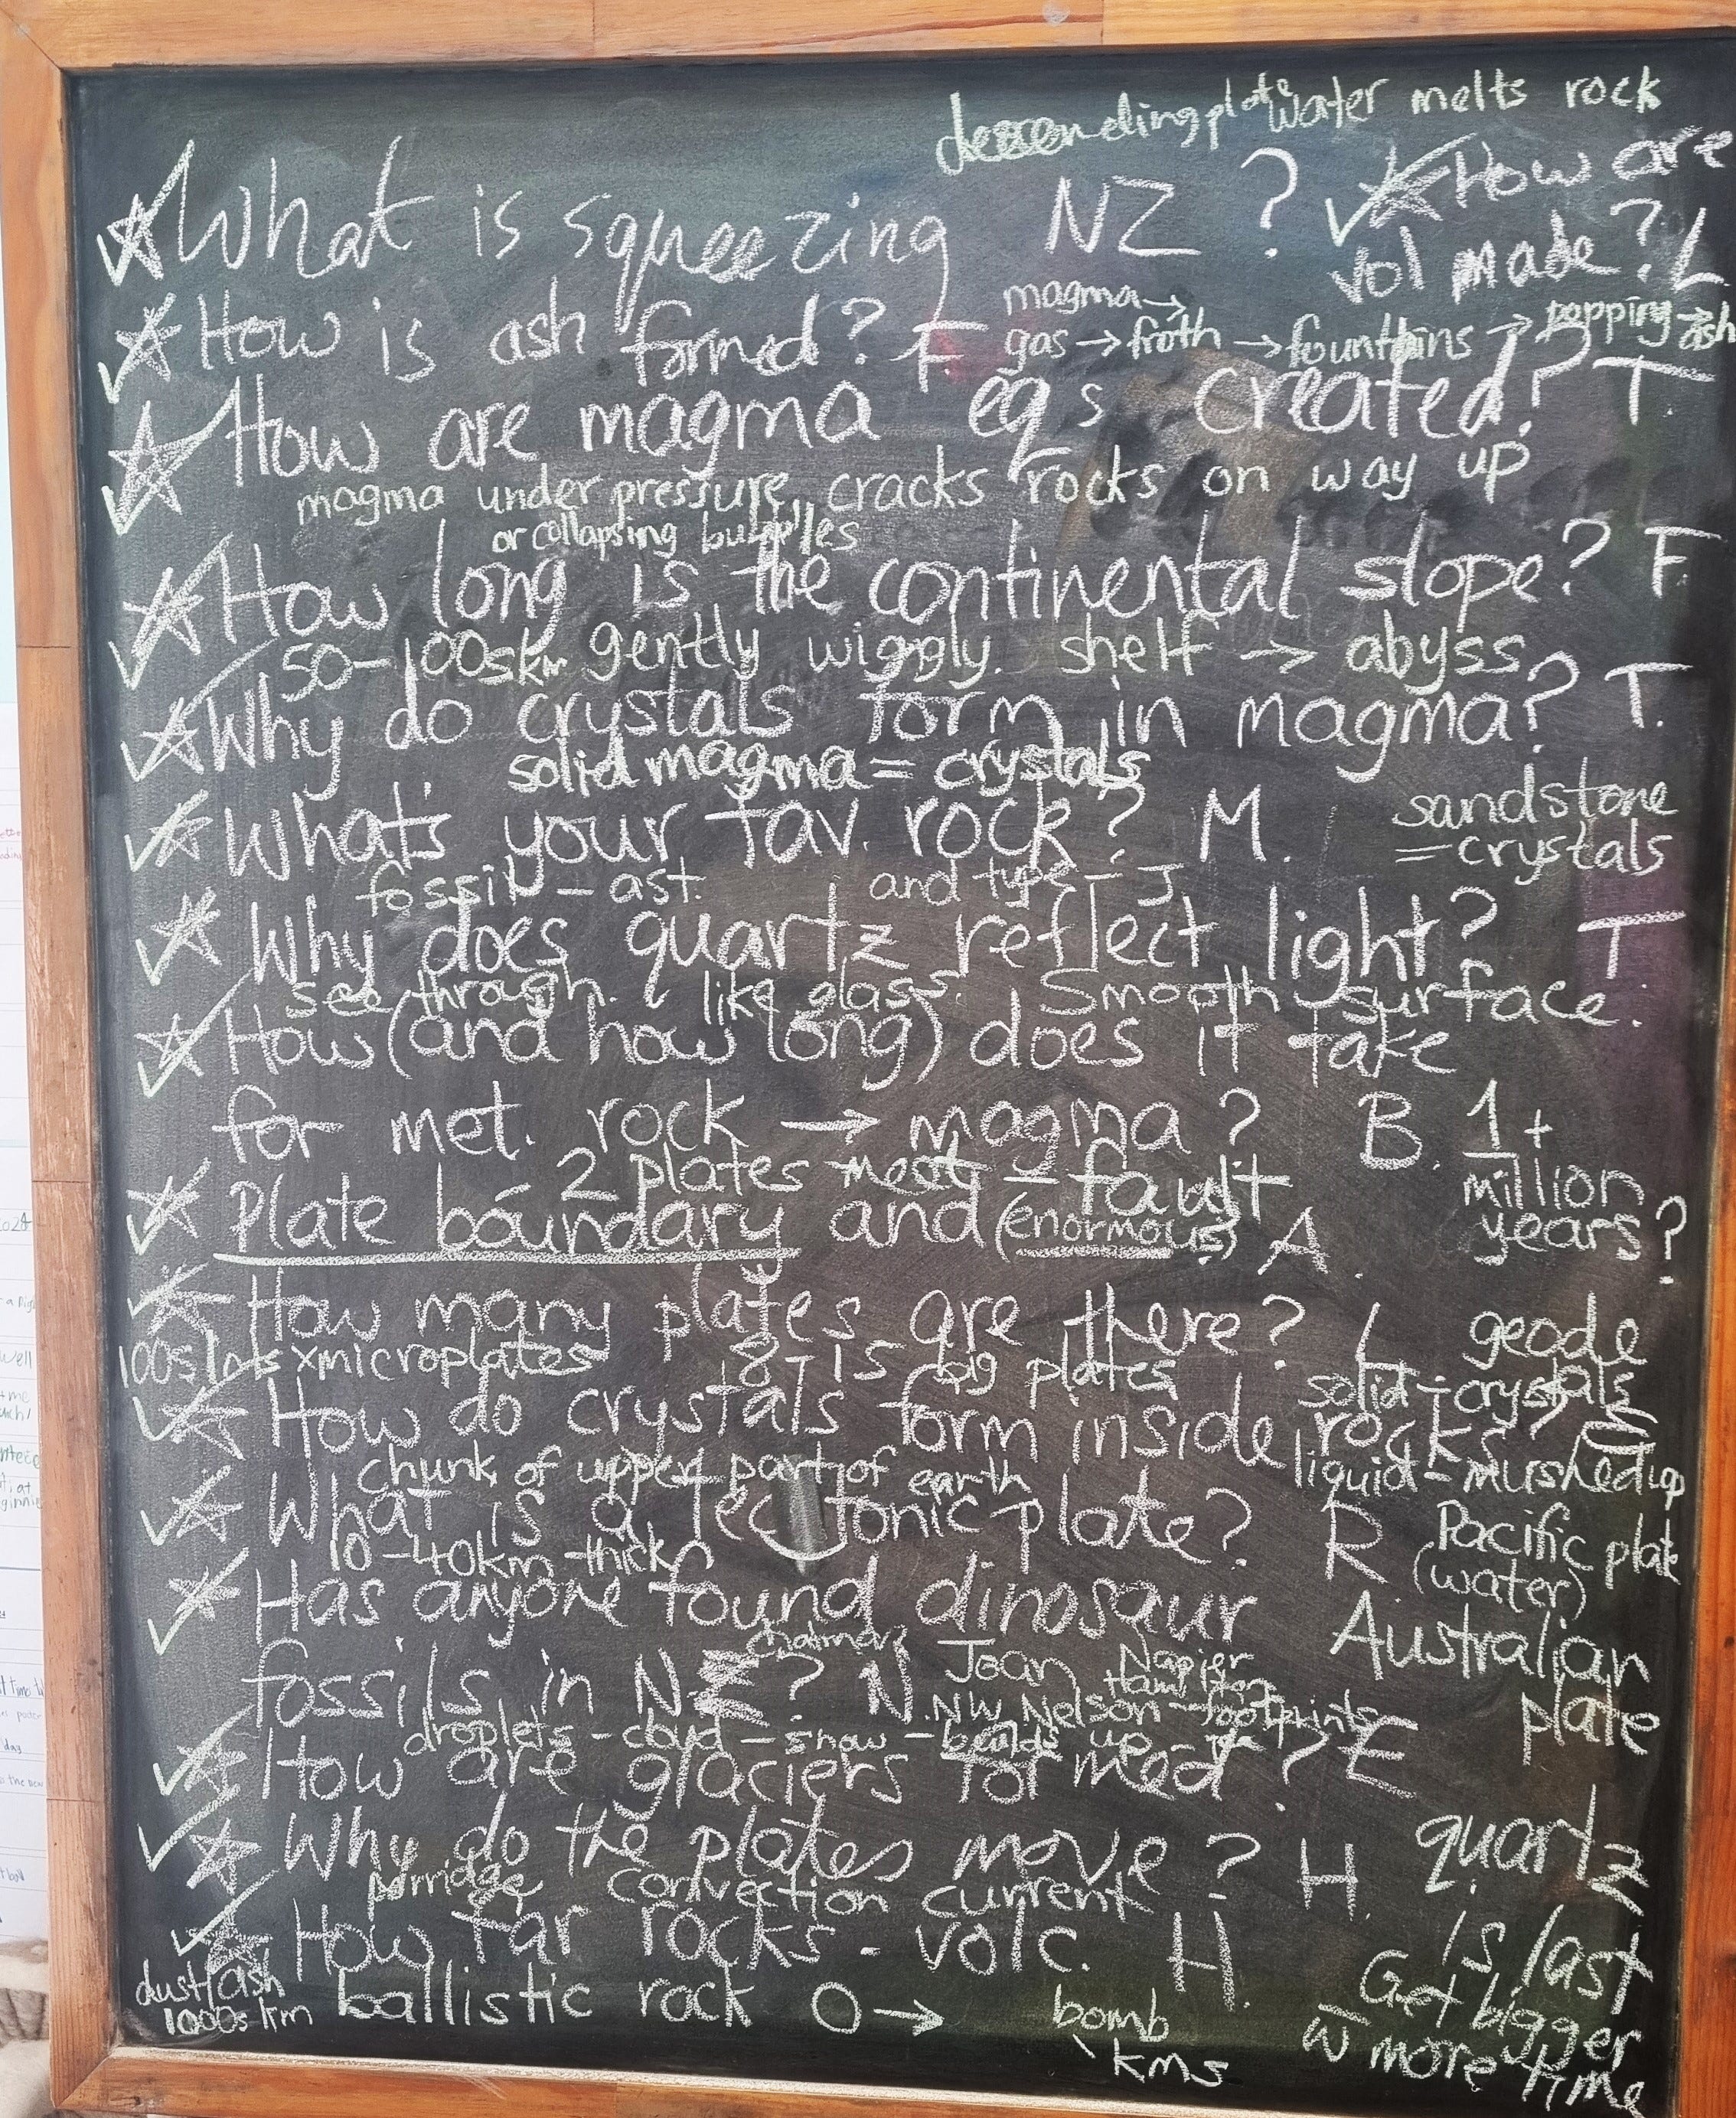 descending plate water melts rock
What is squeezing NZ ? How are
vol made? L
How is ash formed? F.
magma→
gas → froth → fountains → popping → ash
How are magma eqs created? T.
magma under pressure, cracks rocks on way up
or collapsing bubbles
How long is the continental slope? F.
50-100s km gently wiggly. shelf → abyss
Why do crystals form in magma? T.
solid magma = crystals
What's your fav. rock? M.
sandstone
= crystals
fossil - ast. and type - J
Why does quartz reflect light? T
see through. like glass. Smooth surface.
How (and how long) does it take
for met. rock → magma ? B. 1+
million
years?
- 2 plates meet = fault
Plate boundary and (enormous) A.
How many plates are there? L
100s lots x microplates 8-15 big plates
geode
solid - crystals
How do crystals form inside rocks?
liquid - mushed up
chunk of upper part of earth
What is a tectonic plate? R
10-40km thick
Pacific plate
(water)
Australian
plate
Has anyone found dinosaur
fossils in NZ ? N.
Joan
NW Nelson - footprints
droplets - cloud - snow - builds up -
How are glaciers formed? E
Why do the plates move ? H.
porridge convection current
How far rocks - volc. H.
dust/ash
1000s km
ballistic rock O →
bomb
kms
quartz
is last
Get bigger
w more time